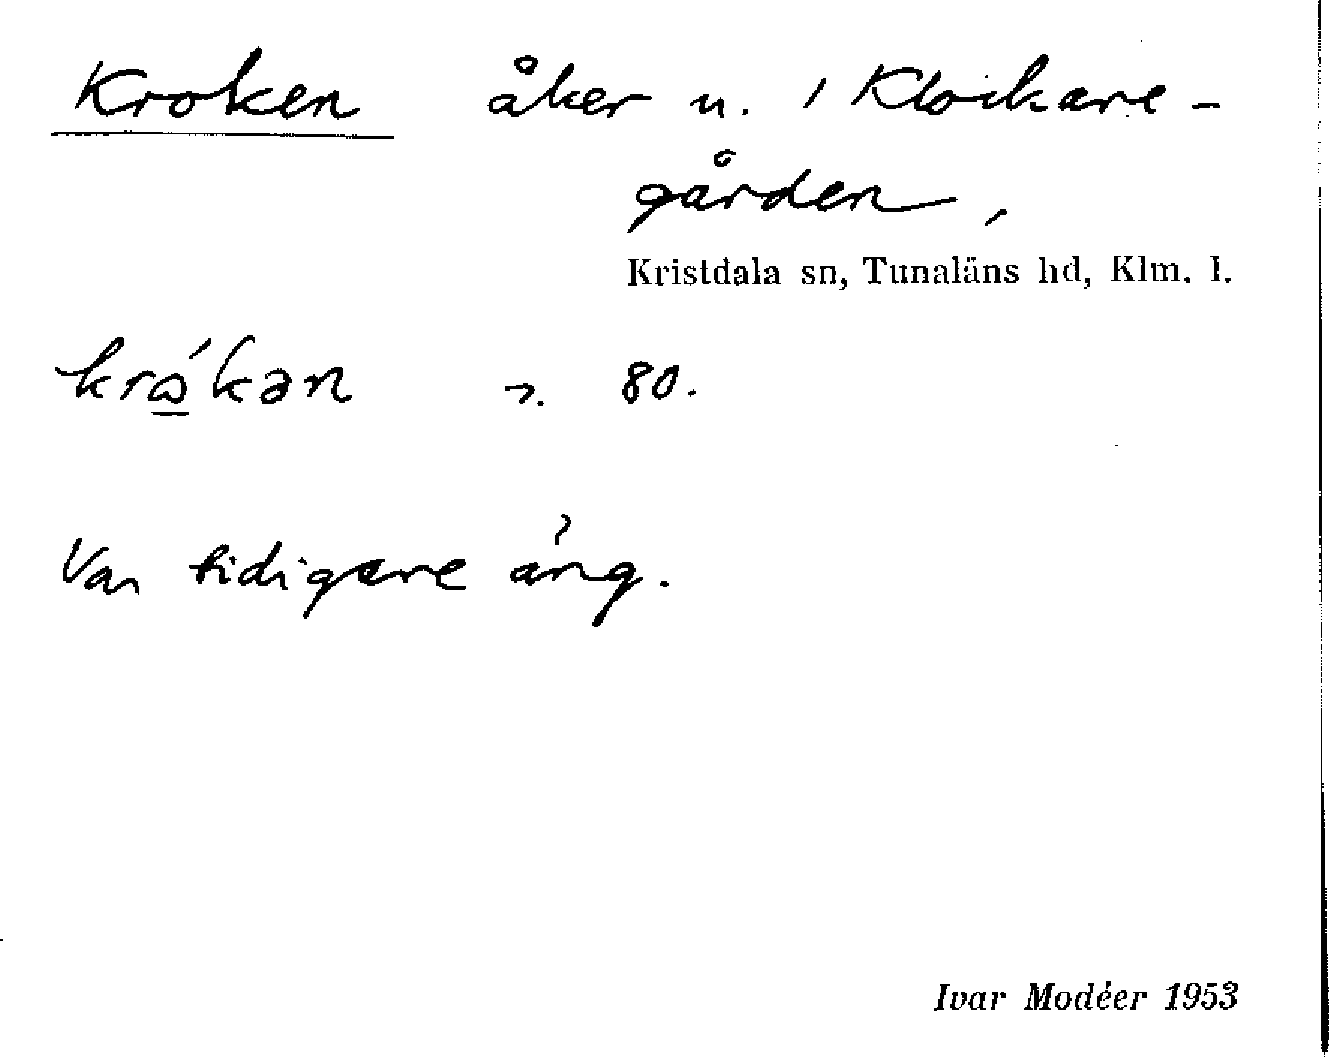 Kroken åker u. / Klockare-
gården,
Kristdala sn, Tunaläns hd, Klm. l.
80.
Var tidigare äng.
Ivar Modéer 1953